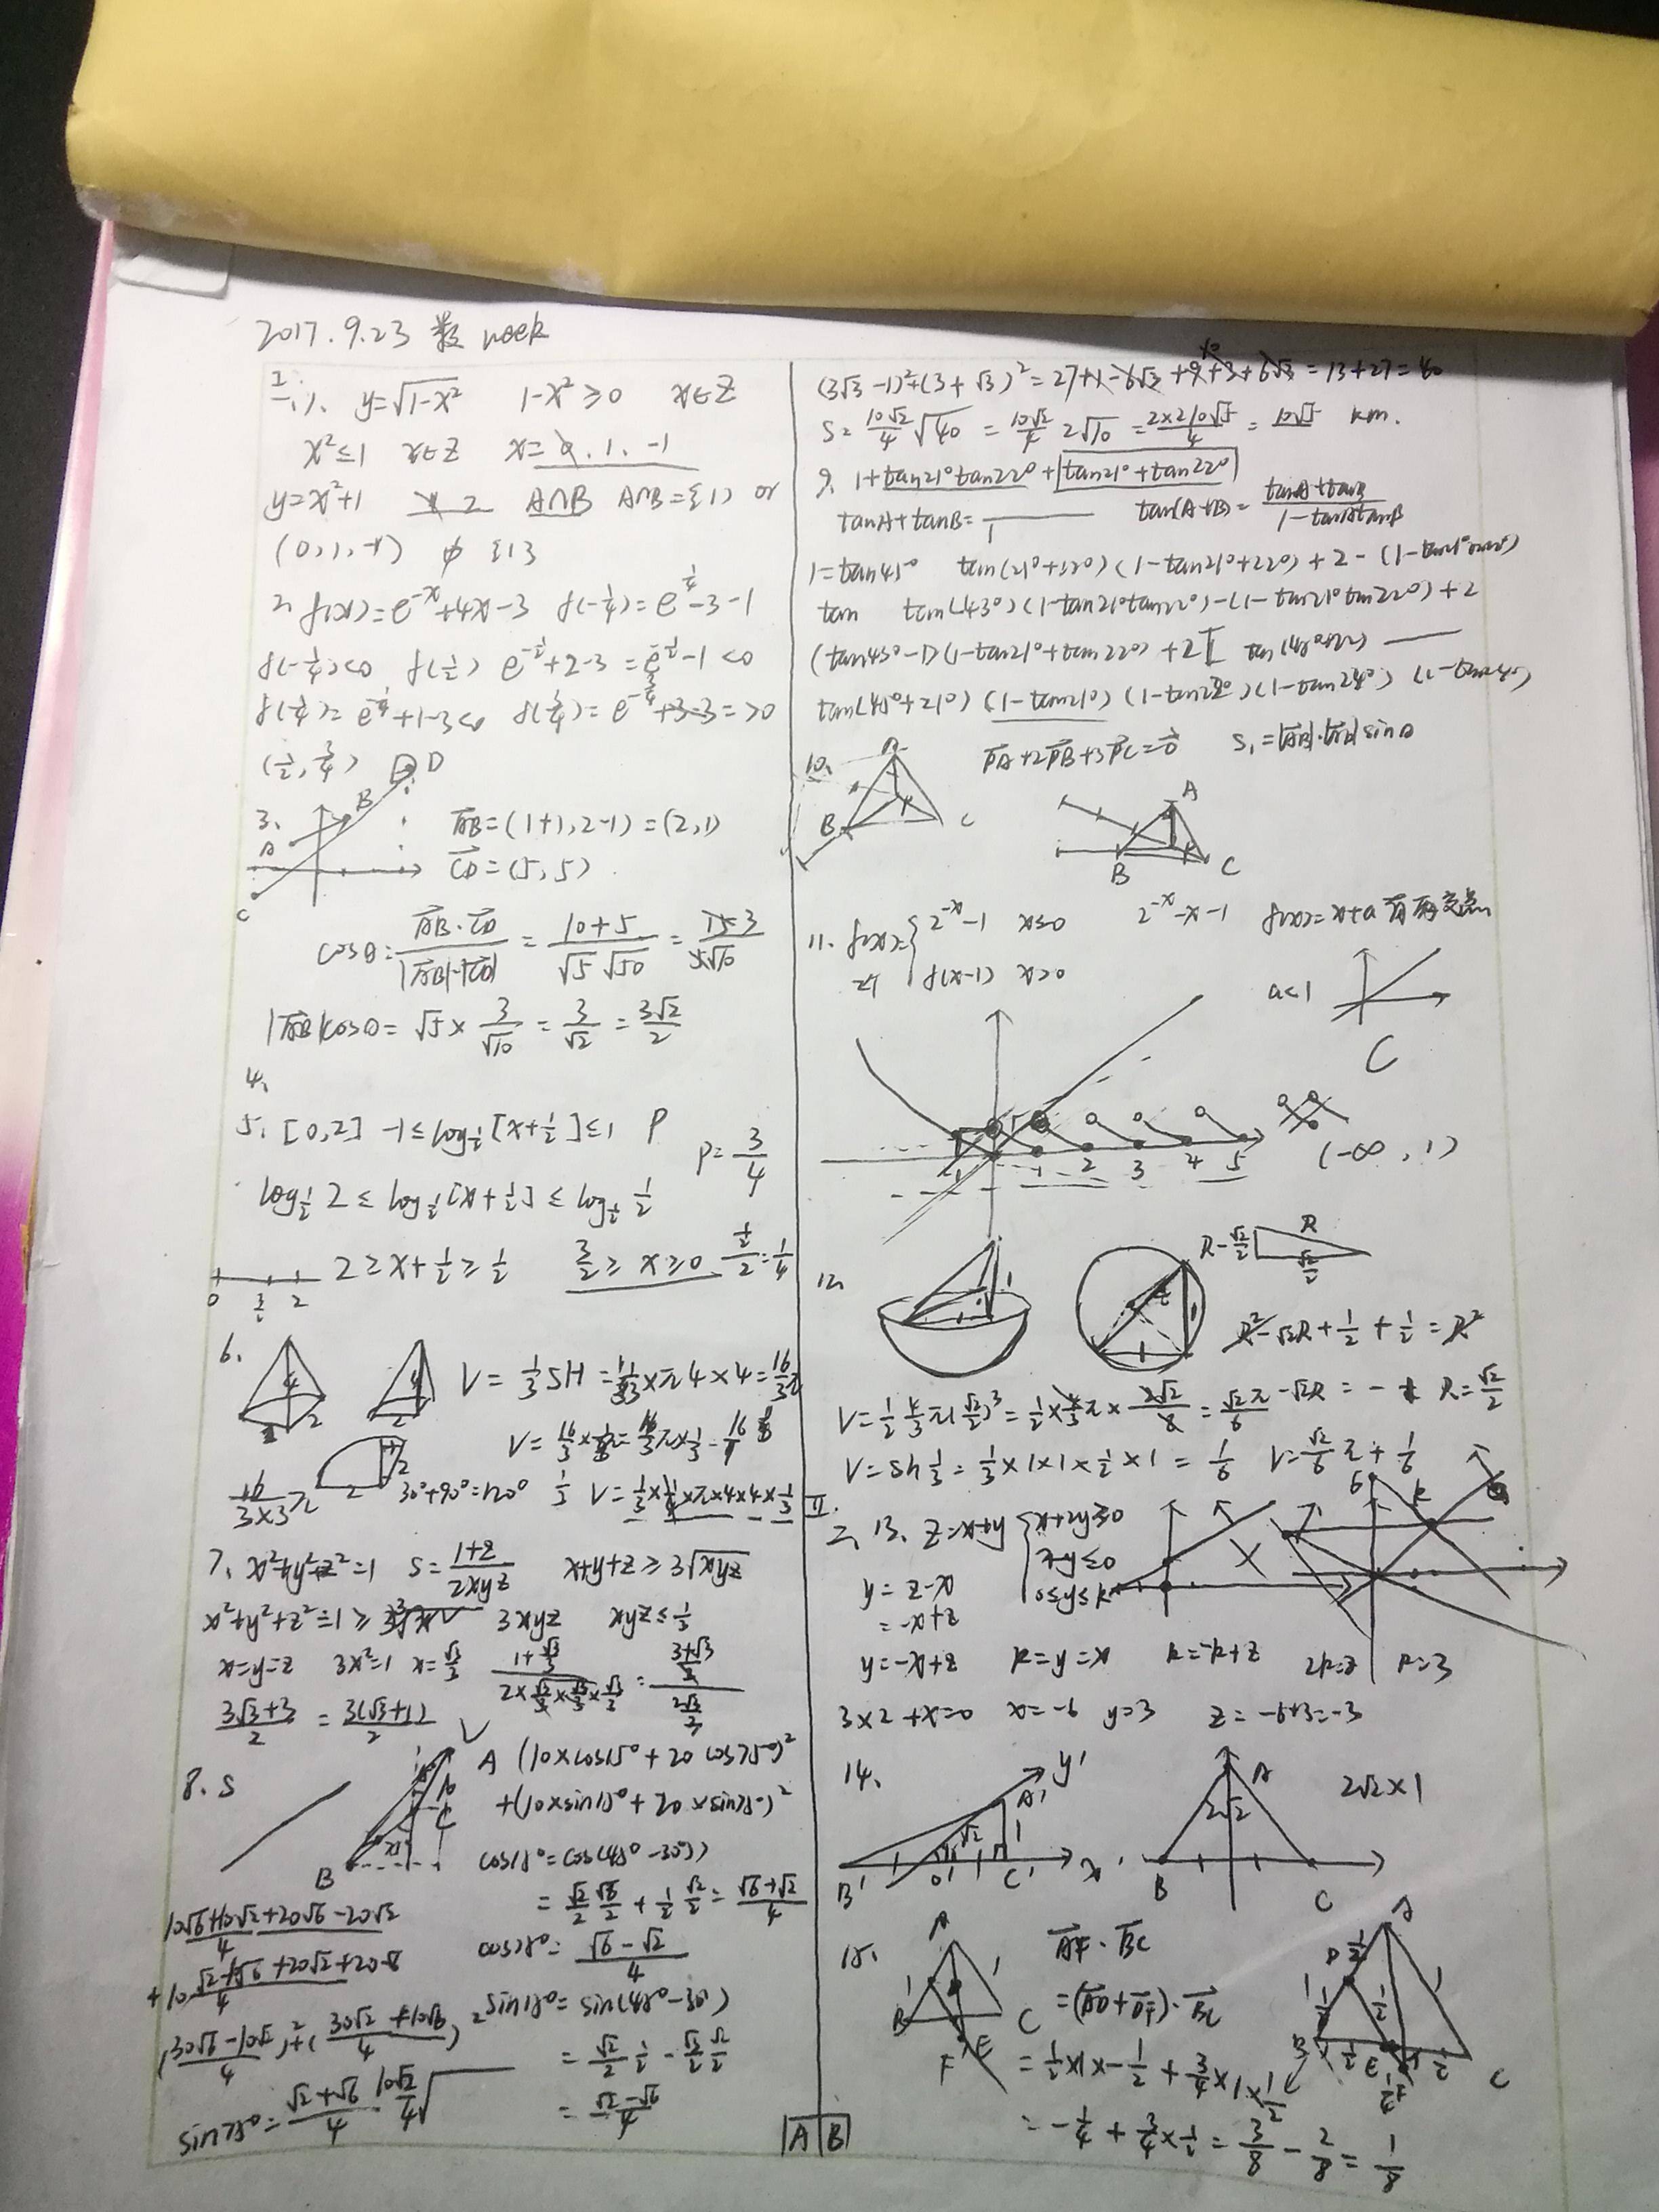 2017.9.23 数 week
一.1. y=√(1-x²) 1-x²≥0 x∈Z
x²≤1 x∈Z x=0.1.-1
y=x²+1 2 A∩B A∩B={1} or
(0,1,-1) ∅ {1}
2. f(x)=e^-x+4x-3 f(-1/4)=e^1/4-3-1
f(-1/4)<0 f(1/2) e^-1/2+2-3=e^-1/2-1<0
f(1/4)=e^-1/4+1-3<0 f(3/4)=e^-3/4+3-3=>0
(1/2,3/4) D
3. A B C
AB=(1+1,2-1)=(2,1)
CD=(5,5)
cosθ=AB·CD/|AB|·|CD|=(10+5)/(√5√50)=15 3/5√10
|AB|cosθ=√5×3/√10=3/√2=3√2/2
4.
5. [0,2] -1≤log1/2[x+1/2]≤1 P
P=3/4
log1/2 2≤log1/2[x+1/2]≤log1/2 1/2
0 3/2 2 2≥x+1/2≥1/2 3/2≥x≥0 1/2/2=1/4
6. 4 2 2 V=1/3SH=1/3×π4×4=16/3π
2 2 30°+90°=120° 1/3 V=1/3×π×4×4×1/3
16/3×3π
7. x²+y²+z²=1 S=(1+z)/2xyz x+y+z≥3√xyz
x²+y²+z²=1≥ 3xyz xyz≤1/3
x=y=z 3x²=1 x=√3/3
(3√3+3)/2=3(√3+1)/2
8. S A (10×cos15°+20cos75°)²
+(10×sin15°+20×sin75°)²
B C cos15°=cos(45°-30°)
=√2/2 √3/2+1/2 √2/2=(√6+√2)/4
(10√6+10√2+20√6-20√2)/4 cos75°=(√6-√2)/4
sin15°=sin(45°-30°)
=√2/2 1/2-√3/2 √2/2
=(√2-√6)/4
sin75°=(√2+√6)/4 10√2/4√
(3√3-1)²+(3+√3)²=27+1-6√3+9+3+6√3=13+27=40
S=10√2/4√40=10√2/4 2√10=2×2×10√5/4=10√5 km.
9. 1+tan21°tan22°+tan21°+tan22°
tanA+tanB= tan(A+B)=(tanA+tanB)/(1-tanAtanB)
1=tan45° tan(21°+22°)(1-tan21°+22°)+2-(1-tan21°tan22°)
tan tan(43°)(1-tan21°tan22°)-(1-tan21°tan22°)+2
(tan43°-1)(1-tan21°+tan22°)+2
tan(45°+21°)(1-tan21°)(1-tan22°)(1-tan24°)
10. A B C PA+2PB+3PC=0 S₁=|AB|·|AB|sinθ
A B C
11. f(x)={2^-x-1 x≤0 2^-x-x-1 f(x)=x+a 有两交点
f(x-1) x>0
a<1
C
-1 1 2 3 4 5 (-∞,1)
12. 1 R-√2/2 R √2/2
R²-√2R+1/2+1/2=R²
V=1/2 4/3π(√2/2)³=1/2×4/3π×2√2/8=√2π/6 -√2R=-1 R=√2/2
V=Sh1/3=1/3×1×1×1/2×1=1/6 V=√2/6π+1/6
二. 13. z=x+y {x+2y≥0
x-y≤0
0≤y≤k
y=z-x
=-x+z
y=-x+z k=y=x k=-k+z 2k=z k=3
3×2+x=0 x=-6 y=3 z=-6+3=-3
14. y' A' √2 1 B' O' C' x' A 2√2 B C 2√2×1
15. A 1 1 B C E F AF·BC
=(AD+DF)·BC
=1/2×1×-1/2+3/4×1×1/2
=-1/4+3/4×1/2=3/8-2/8=1/8
A D 1/2 1 1/2 B 1/2 E 1/4 F 1/2 C
A B